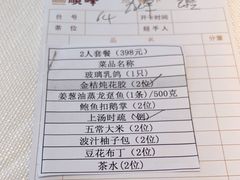 台号
茶位
2人套餐（398元）
菜品名称
玻璃乳鸽（1只）
金桔炖花胶（2位）
姜葱油蒸龙趸鱼(1条)/500克
鲍鱼扣鹅掌（2位）
上汤时疏（例）
五常大米（2位）
波汁柚子包（2位）
豆花布丁（2位）
茶水(2位)